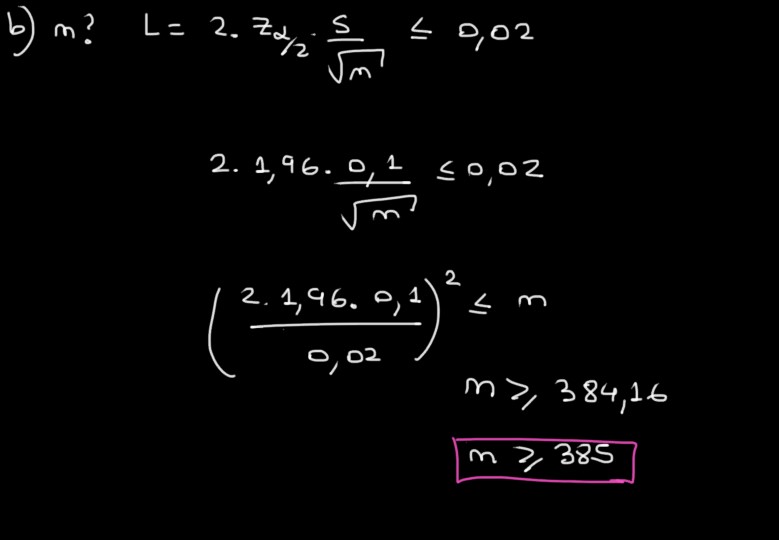 b) n? L = 2 · Zα/2 · S/√n ≤ 0,02
2 · 1,96 · 0,1/√n ≤ 0,02
(2 · 1,96 · 0,1 / 0,02)² ≤ n
n ≥ 384,16
n ≥ 385